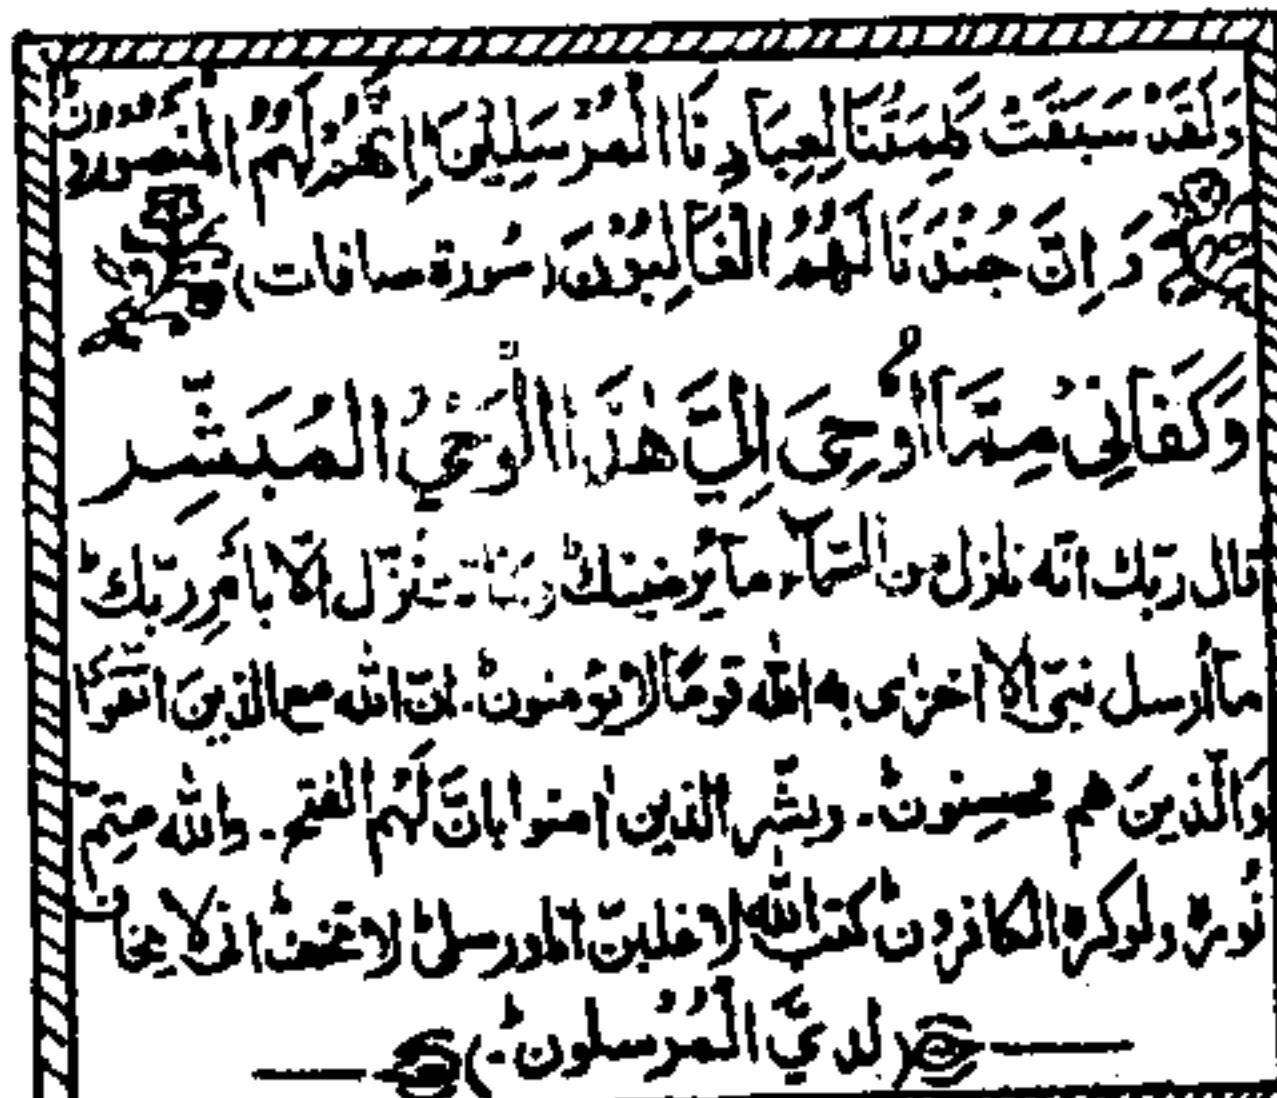 وَلَقَدْ سَبَقَتْ كَلِمَتُنَا لِعِبَادِنَا الْمُرْسَلِيْنَ اِنَّهُمْ لَهُمُ الْمَنْصُورُونَ
وَاِنَّ جُنْدَنَا لَهُمُ الْغَالِبُوْنَ (سُورة صافات)
وَكَفَانِیْ مِمَّا اُوحِیَ اِلَیَّ هٰذَا الْوَحْیُ الْمُبَشِّر
قال ربّك انّه نازل من السّمآء ما يُرضيك وما نتنزّل الّا بأمرِ ربّك
مآ أرسل نبیّ الّا اخزٰی به الله قومًا لا يؤمنون. انّ الله مع الذينَ اتّقَوْا
وَالّذينَ هم محسِنون. وبشّر الذين اٰمنوا بانّ لَهُم الفتح. والله متِمّ
نُوره ولو كره الكافرون كتب الله لاغلبنّ انا ورسلی لا تخف انی لا يخاف
(لدیَّ الْمُرْسلون.)